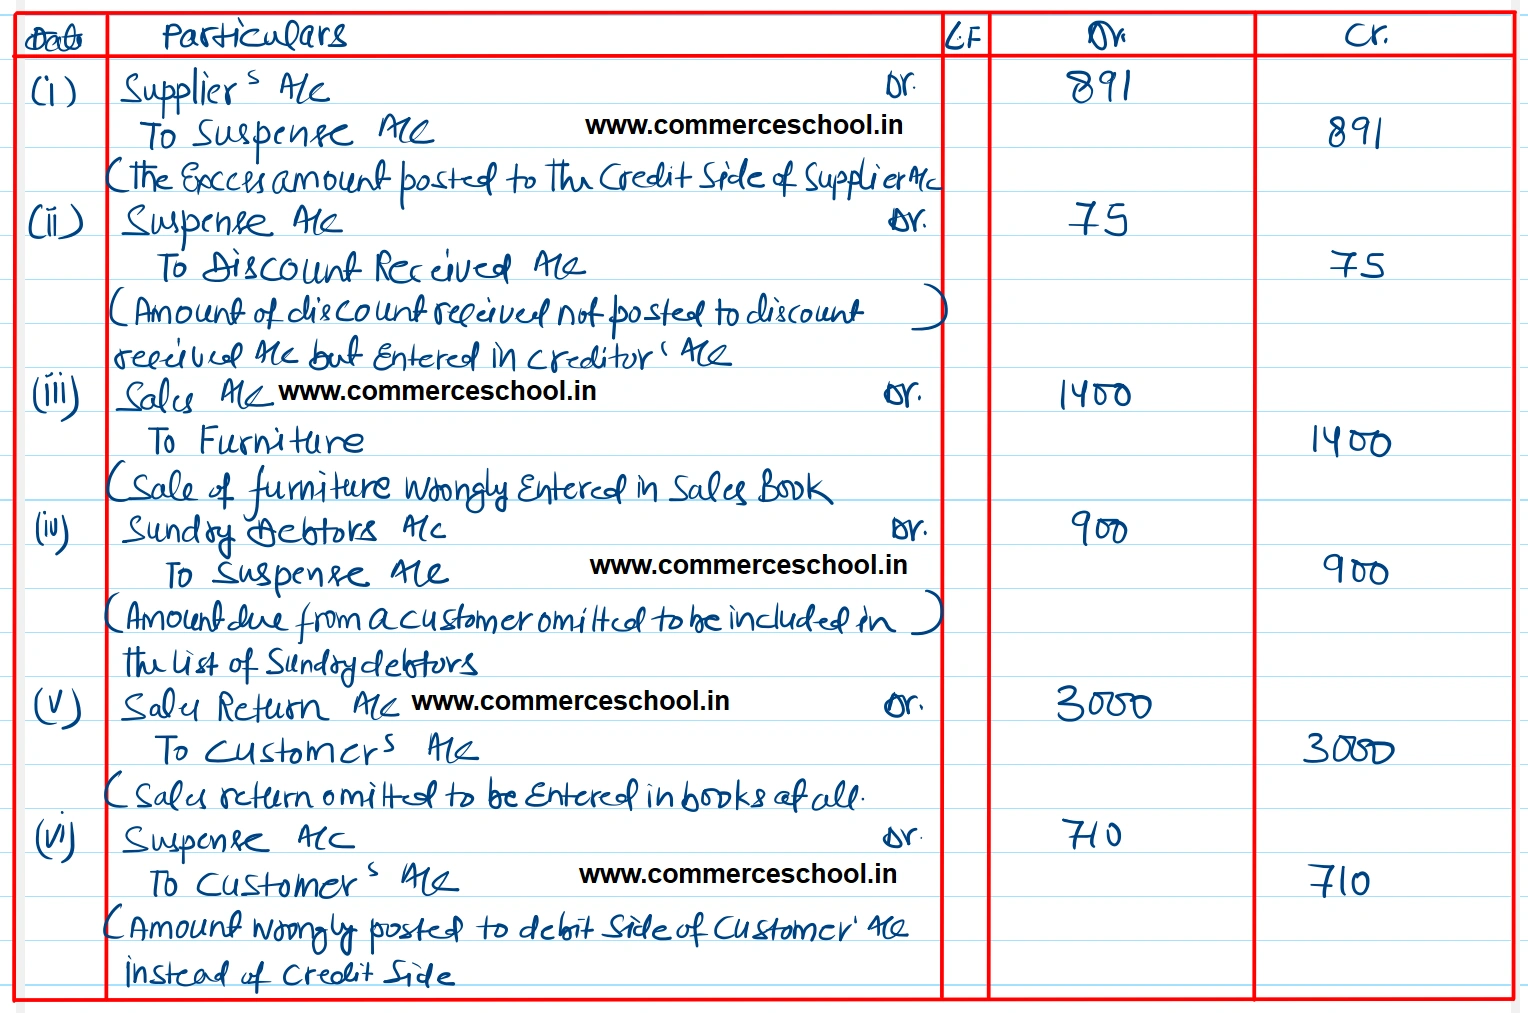 Date Particulars L.F Dr. Cr.
(i) Supplier's A/c Dr. 891
To Suspense A/c www.commerceschool.in 891
(The Excces amount posted to the Credit Side of Supplier A/c
(ii) Suspense A/c Dr. 75
To Discount Received A/c 75
(Amount of discount received not posted to discount )
received A/c but Entered in creditor' A/c
(iii) Sales A/c www.commerceschool.in Dr. 1400
To Furniture 1400
(Sale of furniture wrongly Entered in Sales Book
(iv) Sundry Debtors A/c Dr. 900
To Suspense A/c www.commerceschool.in 900
(Amount due from a customer omitted to be included in )
the list of Sundry debtors
(v) Sales Return A/c www.commerceschool.in Dr. 3000
To Customer's A/c 3000
(Sales return omitted to be Entered in books at all.
(vi) Suspense A/c Dr. 710
To Customer's A/c www.commerceschool.in 710
(Amount wrongly posted to debit Side of Customer' A/c
instead of Credit Side